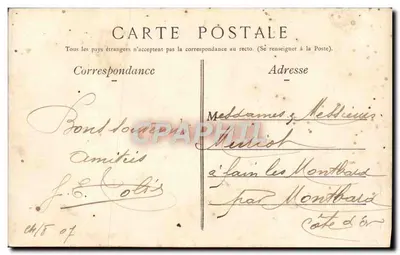 CARTE POSTALE
Tous les pays étrangers n'acceptent pas la correspondance au recto. (Se renseigner à la Poste).
Correspondance
Adresse
Bons
amitiés
J. E.
24/8 07
Mesdames & Messieurs
à fain les Montbard
par Montbard
Côte d'Or
CPAPHIL